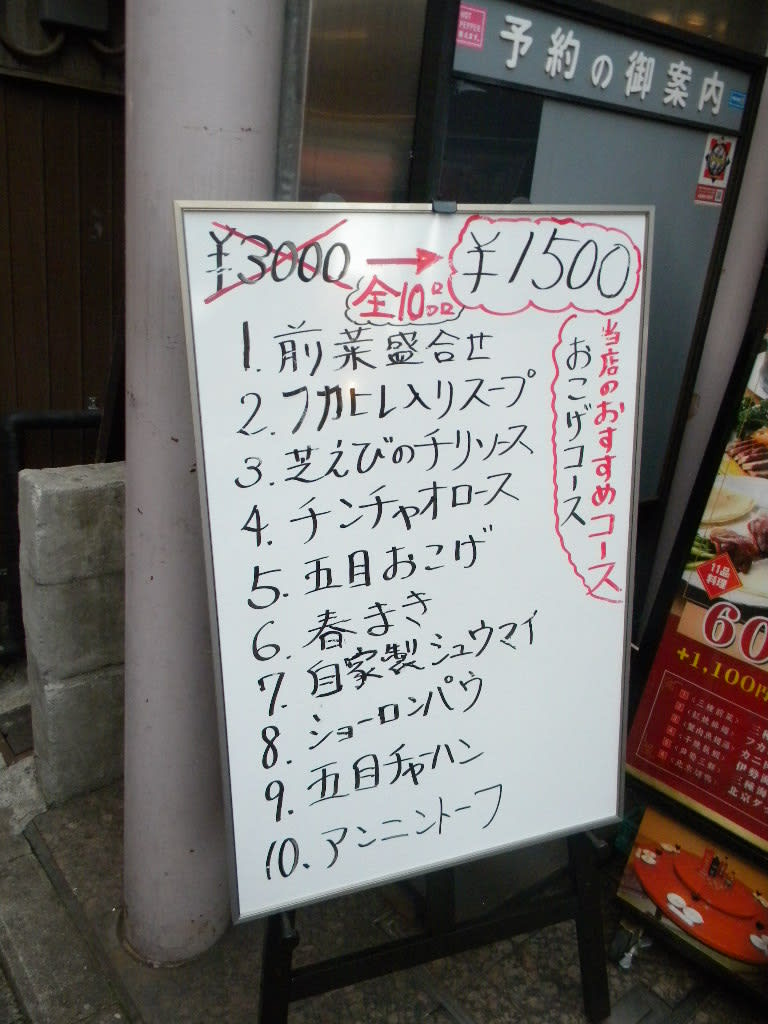 HOT PEPPER
予約の御案内
¥3000 → ¥1500
全10品
1. 前菜盛合せ
2. フカヒレ入りスープ
3. 芝えびのチリソース
4. チンチャオロース
5. 五目おこげ
6. 春まき
7. 自家製シュウマイ
8. ショーロンパウ
9. 五目チャーハン
10. アンニントーフ
当店のおすすめコース
おこげコース
11品
料理
60
+1,100円